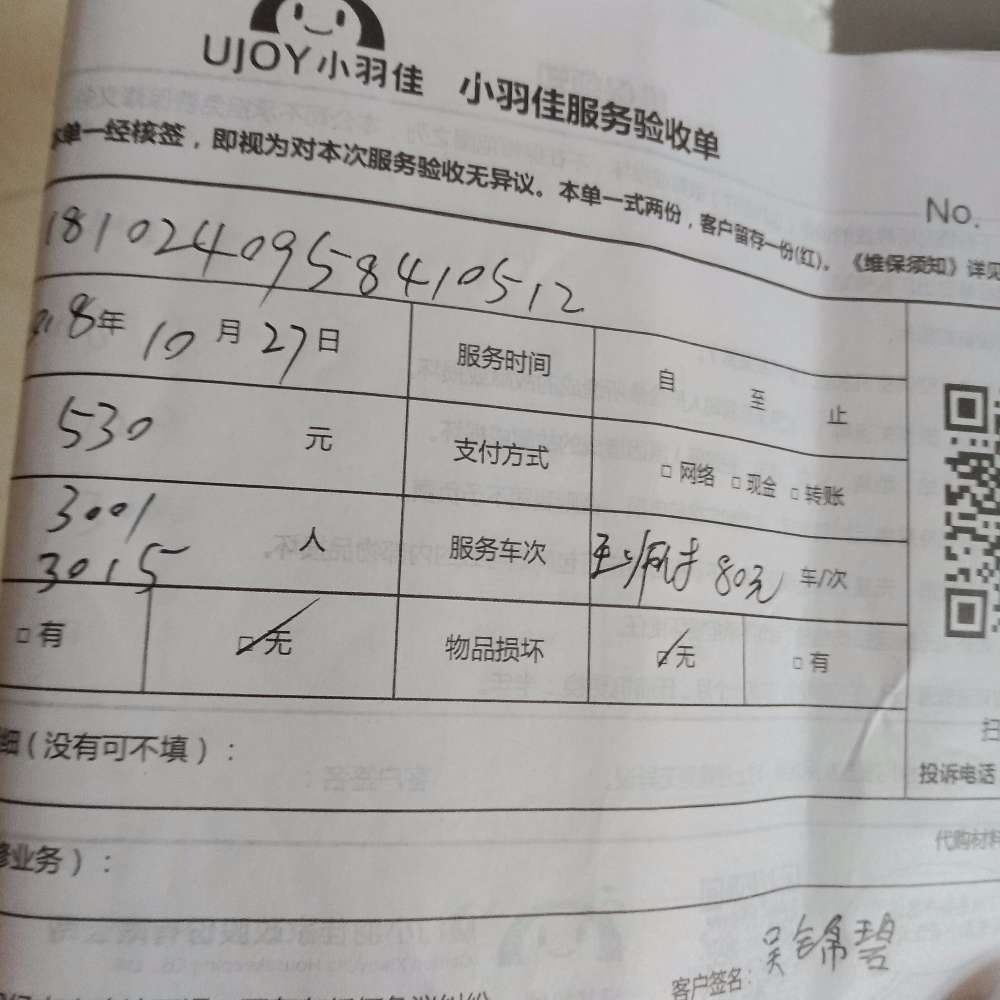 UJOY小羽佳 小羽佳服务验收单
本单一经核签，即视为对本次服务验收无异议。本单一式两份，客户留存一份(红)。《维保须知》详见
No.
181024095841051２
8年 10月27日 服务时间 自 至 止
530 元 支付方式 □网络 □现金 □转账
3001
3015 人 服务车次 80元 车/次
□有 □无 物品损坏 □无 □有
细(没有可不填)：
扫
投诉电话
代购材料
修业务)：
客户签名：吴锦碧